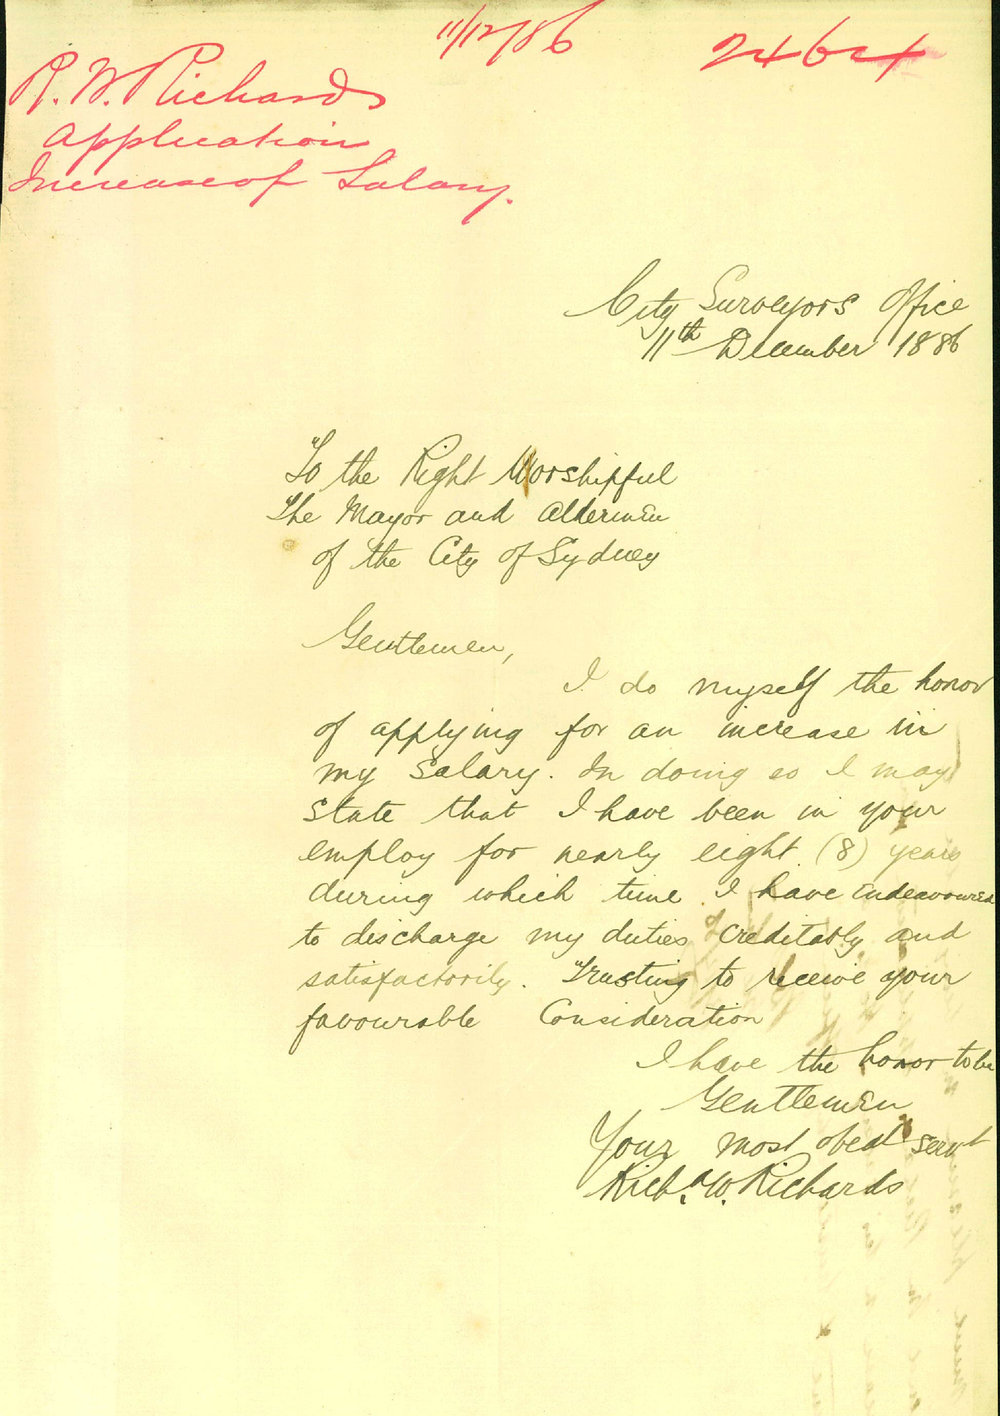 11/12/86
2464
R. W. Richards
Application
Increase of Salary.
City Surveyors Office
11th December 1886
To the Right Worshipful
The Mayor and Aldermen
of the City of Sydney
Gentlemen,
I do myself the honor
of applying for an increase in
my salary. In doing so I may
state that I have been in your
employ for nearly eight (8) years
during which time I have endeavoured
to discharge my duties creditably and
satisfactorily. Trusting to receive your
favourable Consideration
I have the honor to be
Gentlemen
Your most obedt servt
Richd. W. Richards